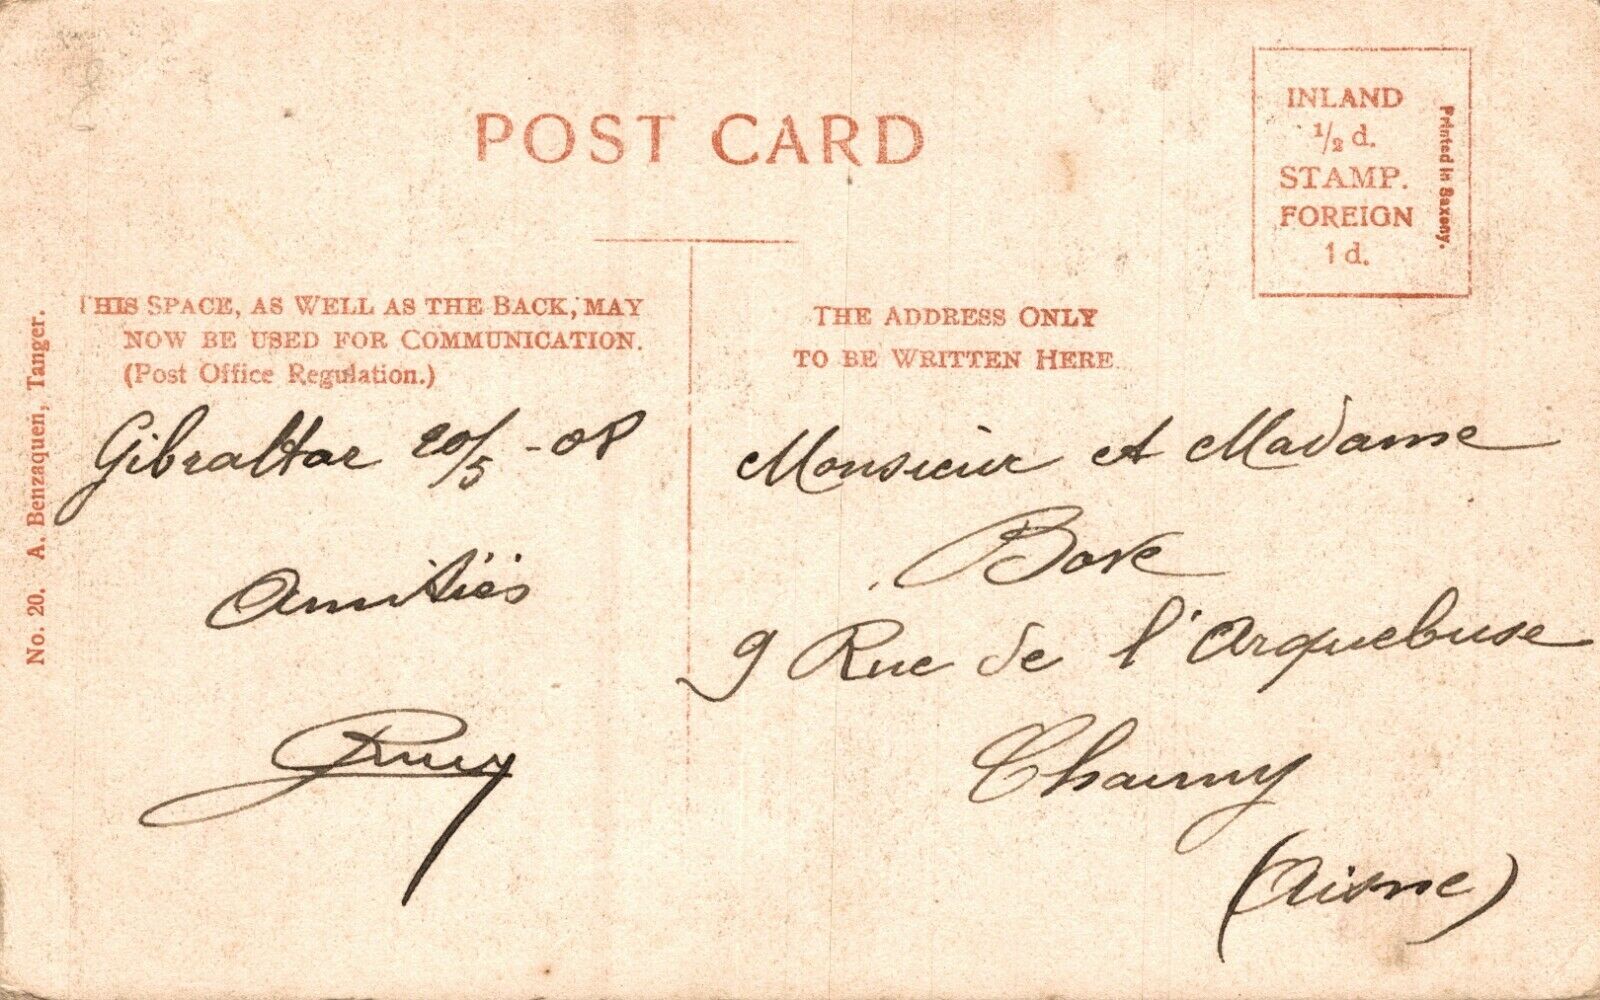 POST CARD
INLAND
1/2 d.
STAMP.
FOREIGN
1 d.
Printed in Saxony.
THIS SPACE, AS WELL AS THE BACK, MAY
NOW BE USED FOR COMMUNICATION.
(Post Office Regulation.)
THE ADDRESS ONLY
TO BE WRITTEN HERE
No. 20. A. Benzaquen, Tanger.
Gibraltar 20/5 - 08
Amitiés
Monsieur et Madame
Bove
9 Rue de l'Arquebuse
Chauny
(Aisne)